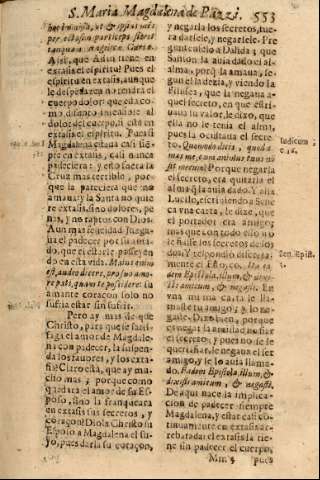 S. Maria Magdalena de Pazzi. 553
per
tanquam
Assi, que Assi tiene su
espiritu? Pues el
espiritu en extasis, aunque
le despedacen no tendrà el
cuerpo dolor; que da co-
mo difunto insensible al
dolor del cuerpo, si està en
extasis el espiritu. Pues si
Magdalena estaua casi siem-
pre en extasis, casi nunca
padeciera: y esto fuera la
Cruz mas terrible, por-
que la pareciera que no
amaua: y la Santa no quie-
re extasis, sino dolores, pe-
nas, y no raptos con Dios.
Aun mas felicidad juzga-
ua el padecer por su ama-
do, que el estarse posseyen-
do en esta vida. Maius enim
est, audeo dicere, pro suo amo-
re pati, quam te possidere: su
amante coraçon solo no
sufria estar sin sufrir.
Pero ay mas: de que
Christo, para que se satis-
faga el amor de Magdale-
na con padecer, la suspen-
da los fauores, y los exta-
sis? Claro està, que ay mu-
cho mas; porque como
quedara el amor de su Es-
poso, sino la franqueara
en extasis sus secretos, y
coraçon? Diola Christo su
Esposo a Magdalena el su-
yo, pues darla su coraçon,
y negarla los secretos, fue-
ra darsele, y negarsele. Pre
guntauale lo a Dalida: que
Sanson la auia dado el al-
ma, porque la amaua, se-
gun el la dezia, y viendo la
Filistea, que la negaua a-
quel secreto, en que estri-
uaua su valor, le dixo, que
ella no le tenia el alma,
pues la ocultaua el secre-
to. Quomodo dicis, quod a-
mas me, cum animus tuus no
sit mecum? Porque negarla
el secreto, era quitarla el
alma q̃ la auia dado. Y assi
Lucilo, escriuiendo a Sene-
ca vna carta, le dize, que
el portador era amigo;
mas que con todo esso no
le fiasse los secretos de los
dos: Y respondiò discreta-
mente el Filosofo.
dem Epistola, illum, &
li amicum, & negasti. En
vna misma carta le lla-
maste tu amigo; y lo ne-
gaste. Dixo bien, porque
es negar la amistad no fiar
el secreto; y pues no se le
queria fiar, le negaua el ser
amigo, y le lo auia llama-
do. Eadem Epistola illum, &
dixisti amicum, & negasti.
De aqui nace la implica-
cion de padecer siempre
Magdalena, y estar casi co-
tinuamente en extasis ar-
rebatada: el extasis la tie-
ne sin padecer el cuerpo,
Mm 4 pues
Iudicum
c. 16.
Sen. Epist.
3.